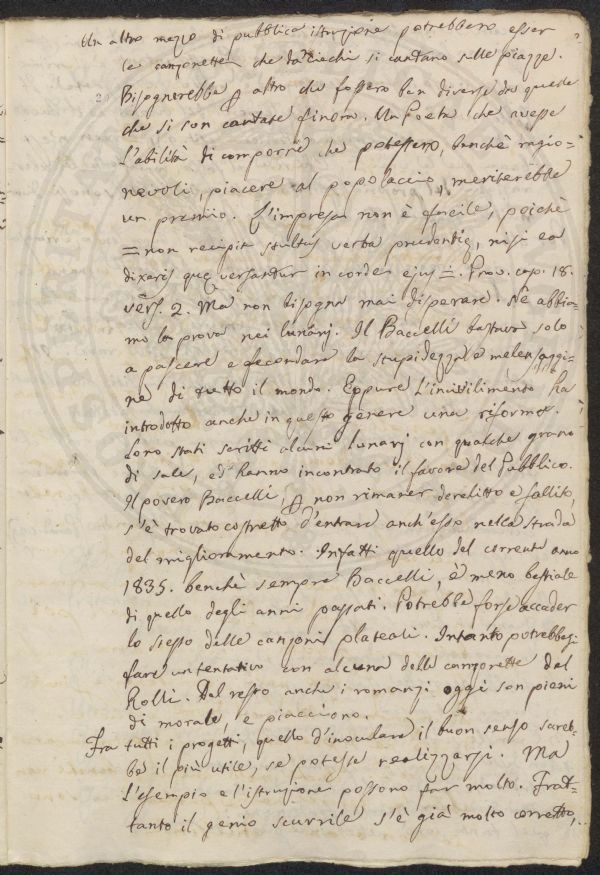 Un altro mezzo di pubblica istruzione potrebbero esser
le canzonette che da' ciechi si cantano sulle piazze.
Bisognerebbe p altro che fossero ben diverse da quelle
che si son cantate finora. Un Poeta che avesse
l'abilità di comporne che potessero, benchè ragio=
nevoli, piacere al popolaccio, meriterebbe
un premio. L'impresa non è facile, poichè
= non recipit stultus verba prudentię, nisi ea
dixeris quę versantur in corde ejus =. Prov. cap. 18.
vers. 2. Ma non bisogna mai disperare. Ne abbia-
mo la prova nei lunarj. Il Baccelli bastava solo
a pascere e fecondare la stupidezza e melensaggi-
ne di tutto il mondo. Eppure l'incivilimento ha
introdotto anche in questo genere una riforma.
Sono stati scritti alcuni lunarj con qualche grano
di sale, ed hanno incontrato il favore del Pubblico.
Il povero Baccelli, p non rimaner derelitto e fallito,
s'è trovato costretto d'entrare anch'esso nella strada
del miglioramento. Infatti quello del corrente anno
1835. benchè sempre Baccelli, è meno bestiale
di quello degli anni passati. Potrebbe forse accader
lo stesso delle canzoni plateali. Intanto potrebbesi
fare un tentativo con alcuna delle canzonette del
Rolli. Del resto anche i romanzi oggi son pieni
di morale, e piacciono.
Fra tutti i progetti, quello d'inoculare il buon senso sareb-
be il più utile, se potesse realizzarsi. Ma
l'esempio e l'istruzione possono far molto. Frat-
tanto il genio scurrile s'è già molto corretto,